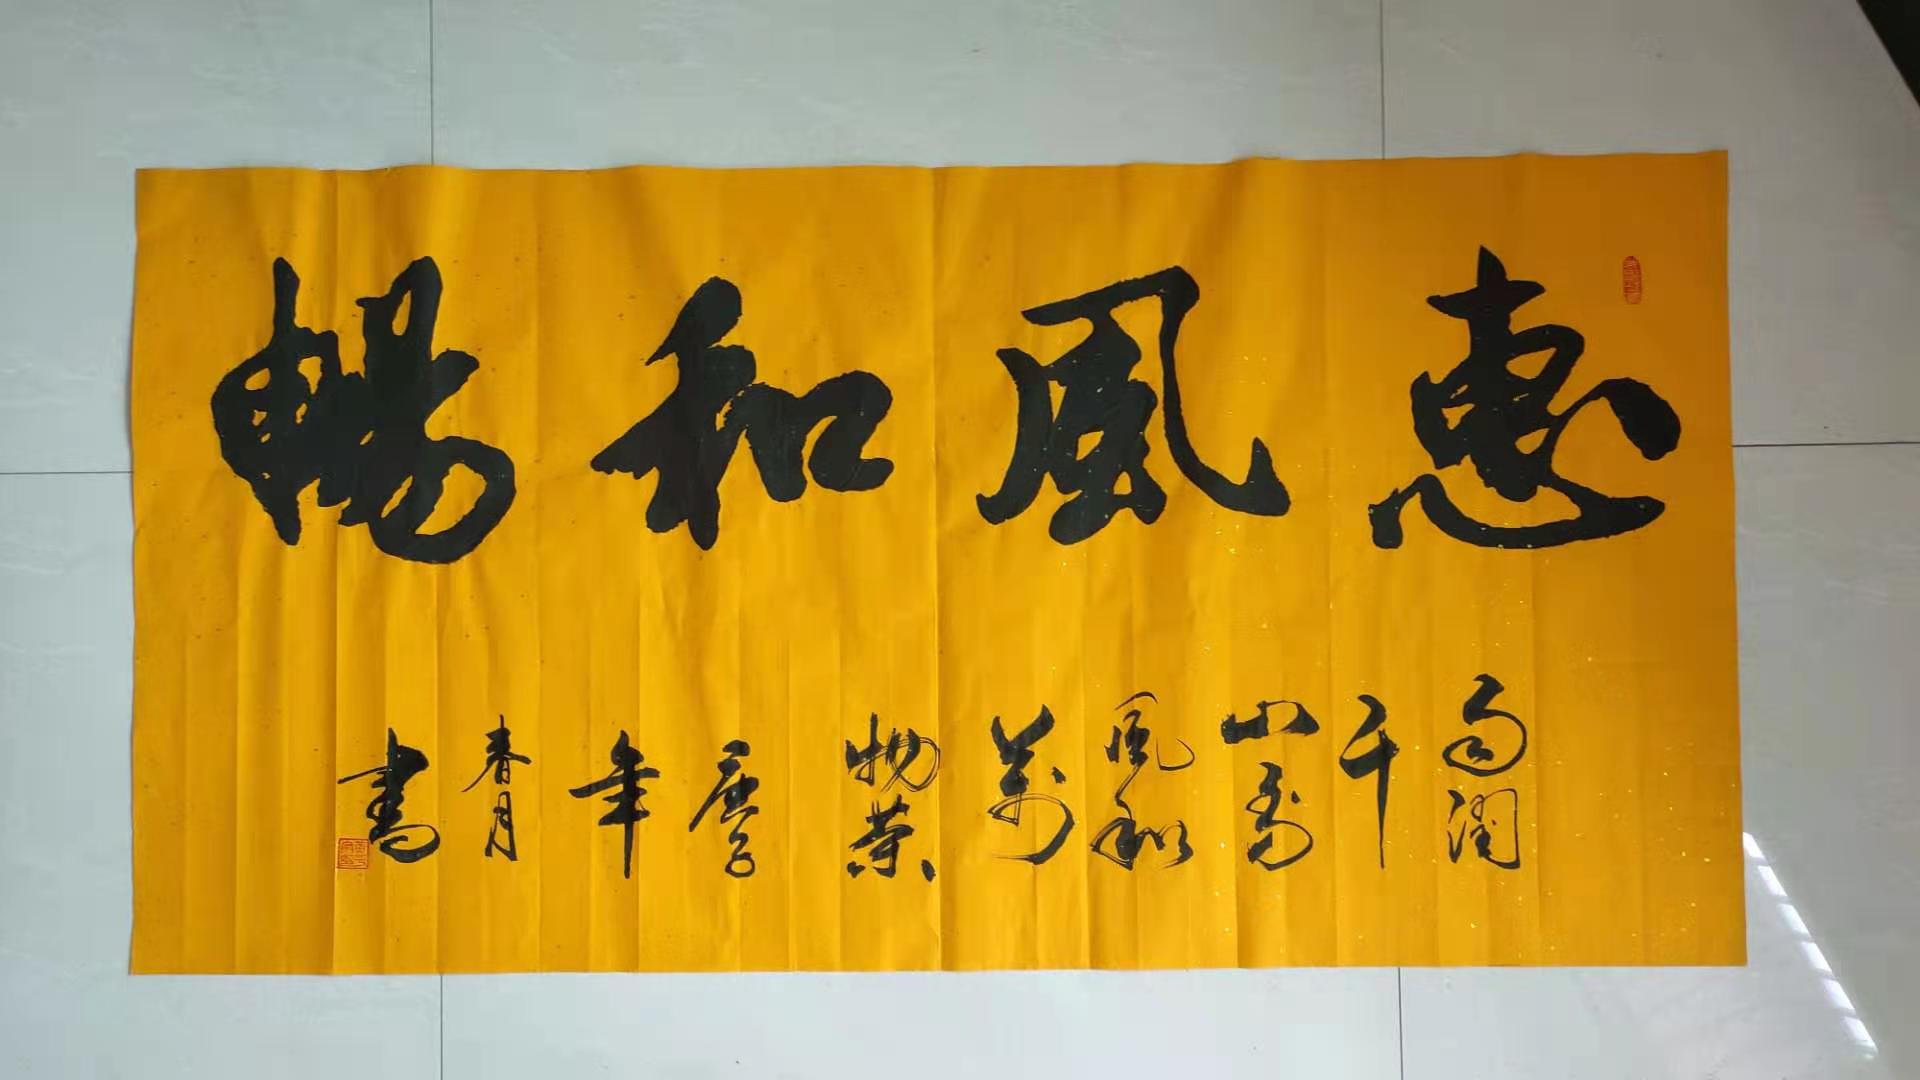 惠風和暢
雨潤
千
山秀
風和
萬
物榮
庚子
年
春月
書